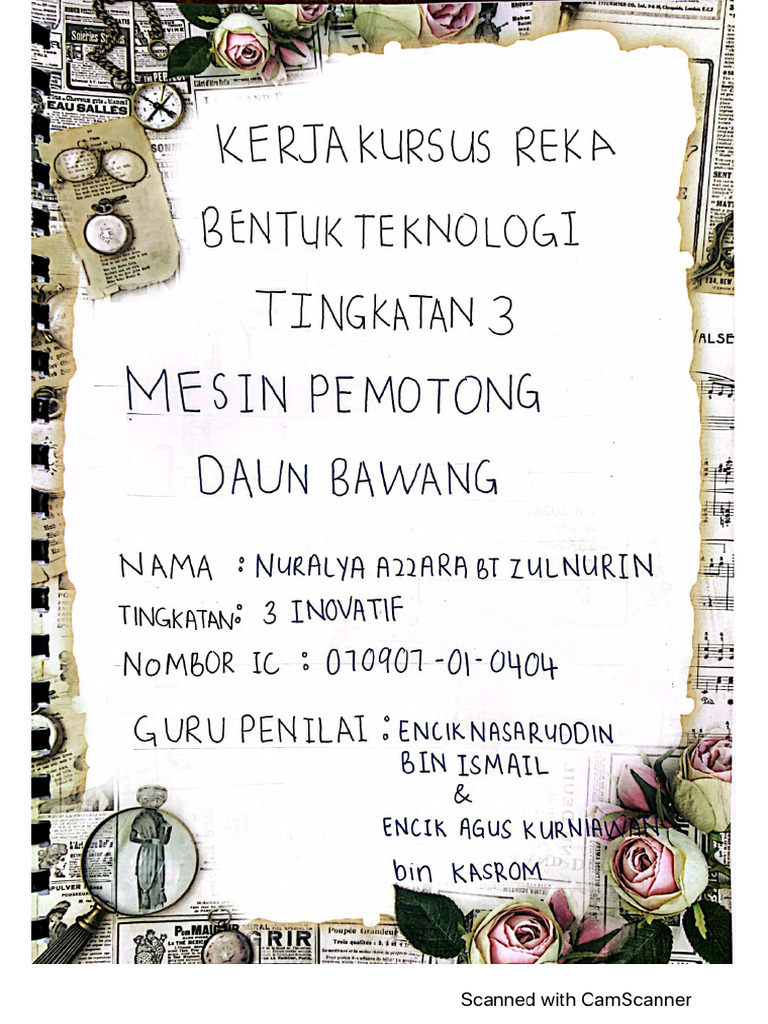 KERJA KURSUS REKA
BENTUK TEKNOLOGI
TINGKATAN 3
MESIN PEMOTONG
DAUN BAWANG
NAMA : NURALYA AZZARA BT ZULNURIN
TINGKATAN: 3 INOVATIF
NOMBOR IC : 070907-01-0404
GURU PENILAI : ENCIK NASARUDDIN
BIN ISMAIL
&
ENCIK AGUS KURNIAWAN
bin KASROM
EAU SALLÈS
Poupée Grandeur
Scanned with CamScanner